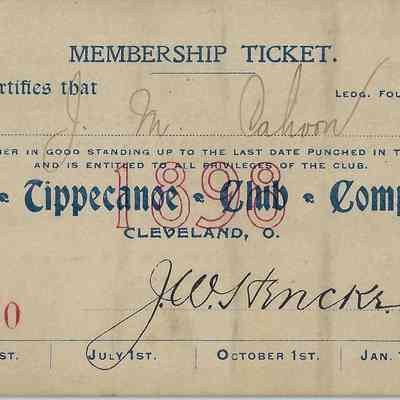 MEMBERSHIP TICKET.
rtifies that
LEDG. FOL
J. M. Cahoon
BER IN GOOD STANDING UP TO THE LAST DATE PUNCHED IN T
AND IS ENTITLED TO ALL PRIVILEGES OF THE CLUB.
Tippecanoe · Club · Comp
1898
CLEVELAND, O.
J. W. Stencke.
0
ST. JULY 1ST. OCTOBER 1ST. JAN.